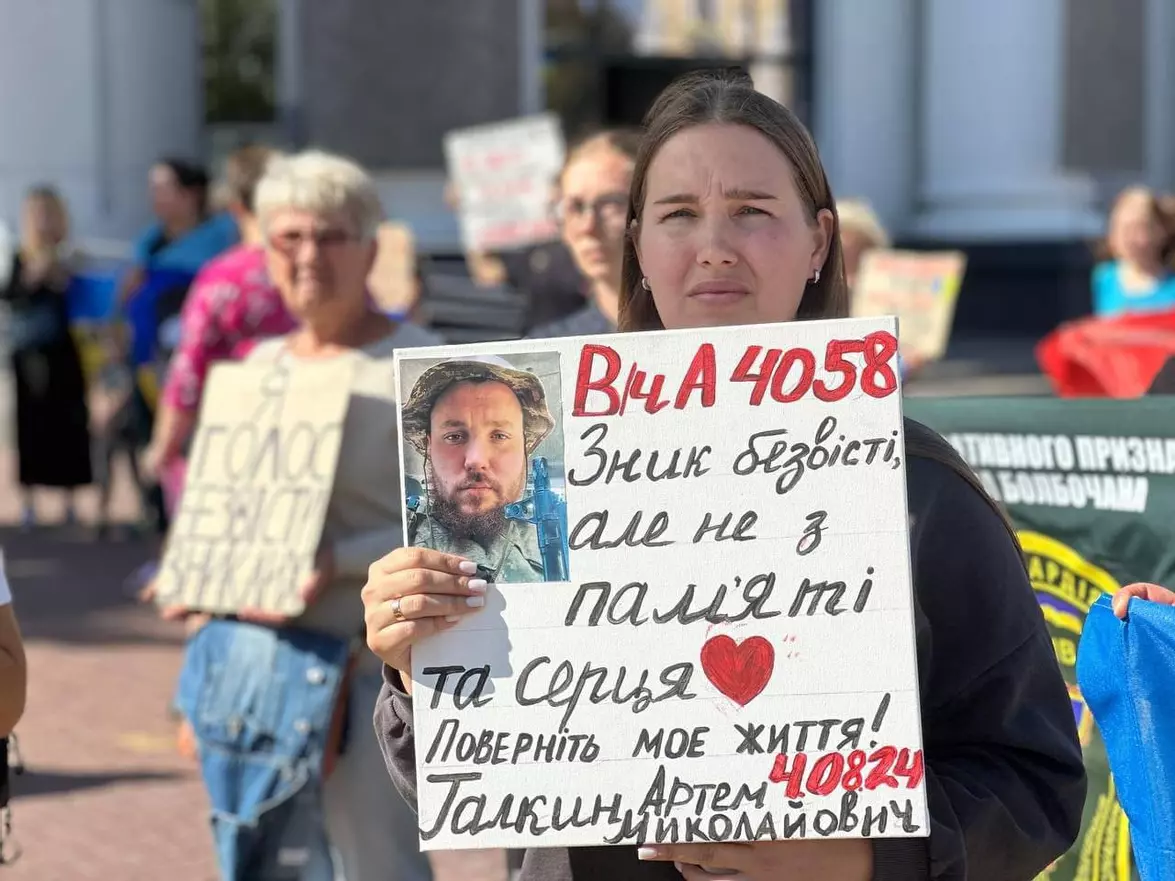 В/ч А 4058
Зник безвісті,
але не з
пам'яті
та серця
Поверніть моє життя!
4.08.24
Галкин Артем
Миколайович
Я
ГОЛОС
БЕЗВІСТІ
ЗНИКЛИХ
АТИВНОГО ПРИЗНА
А БОЛБОЧАНА